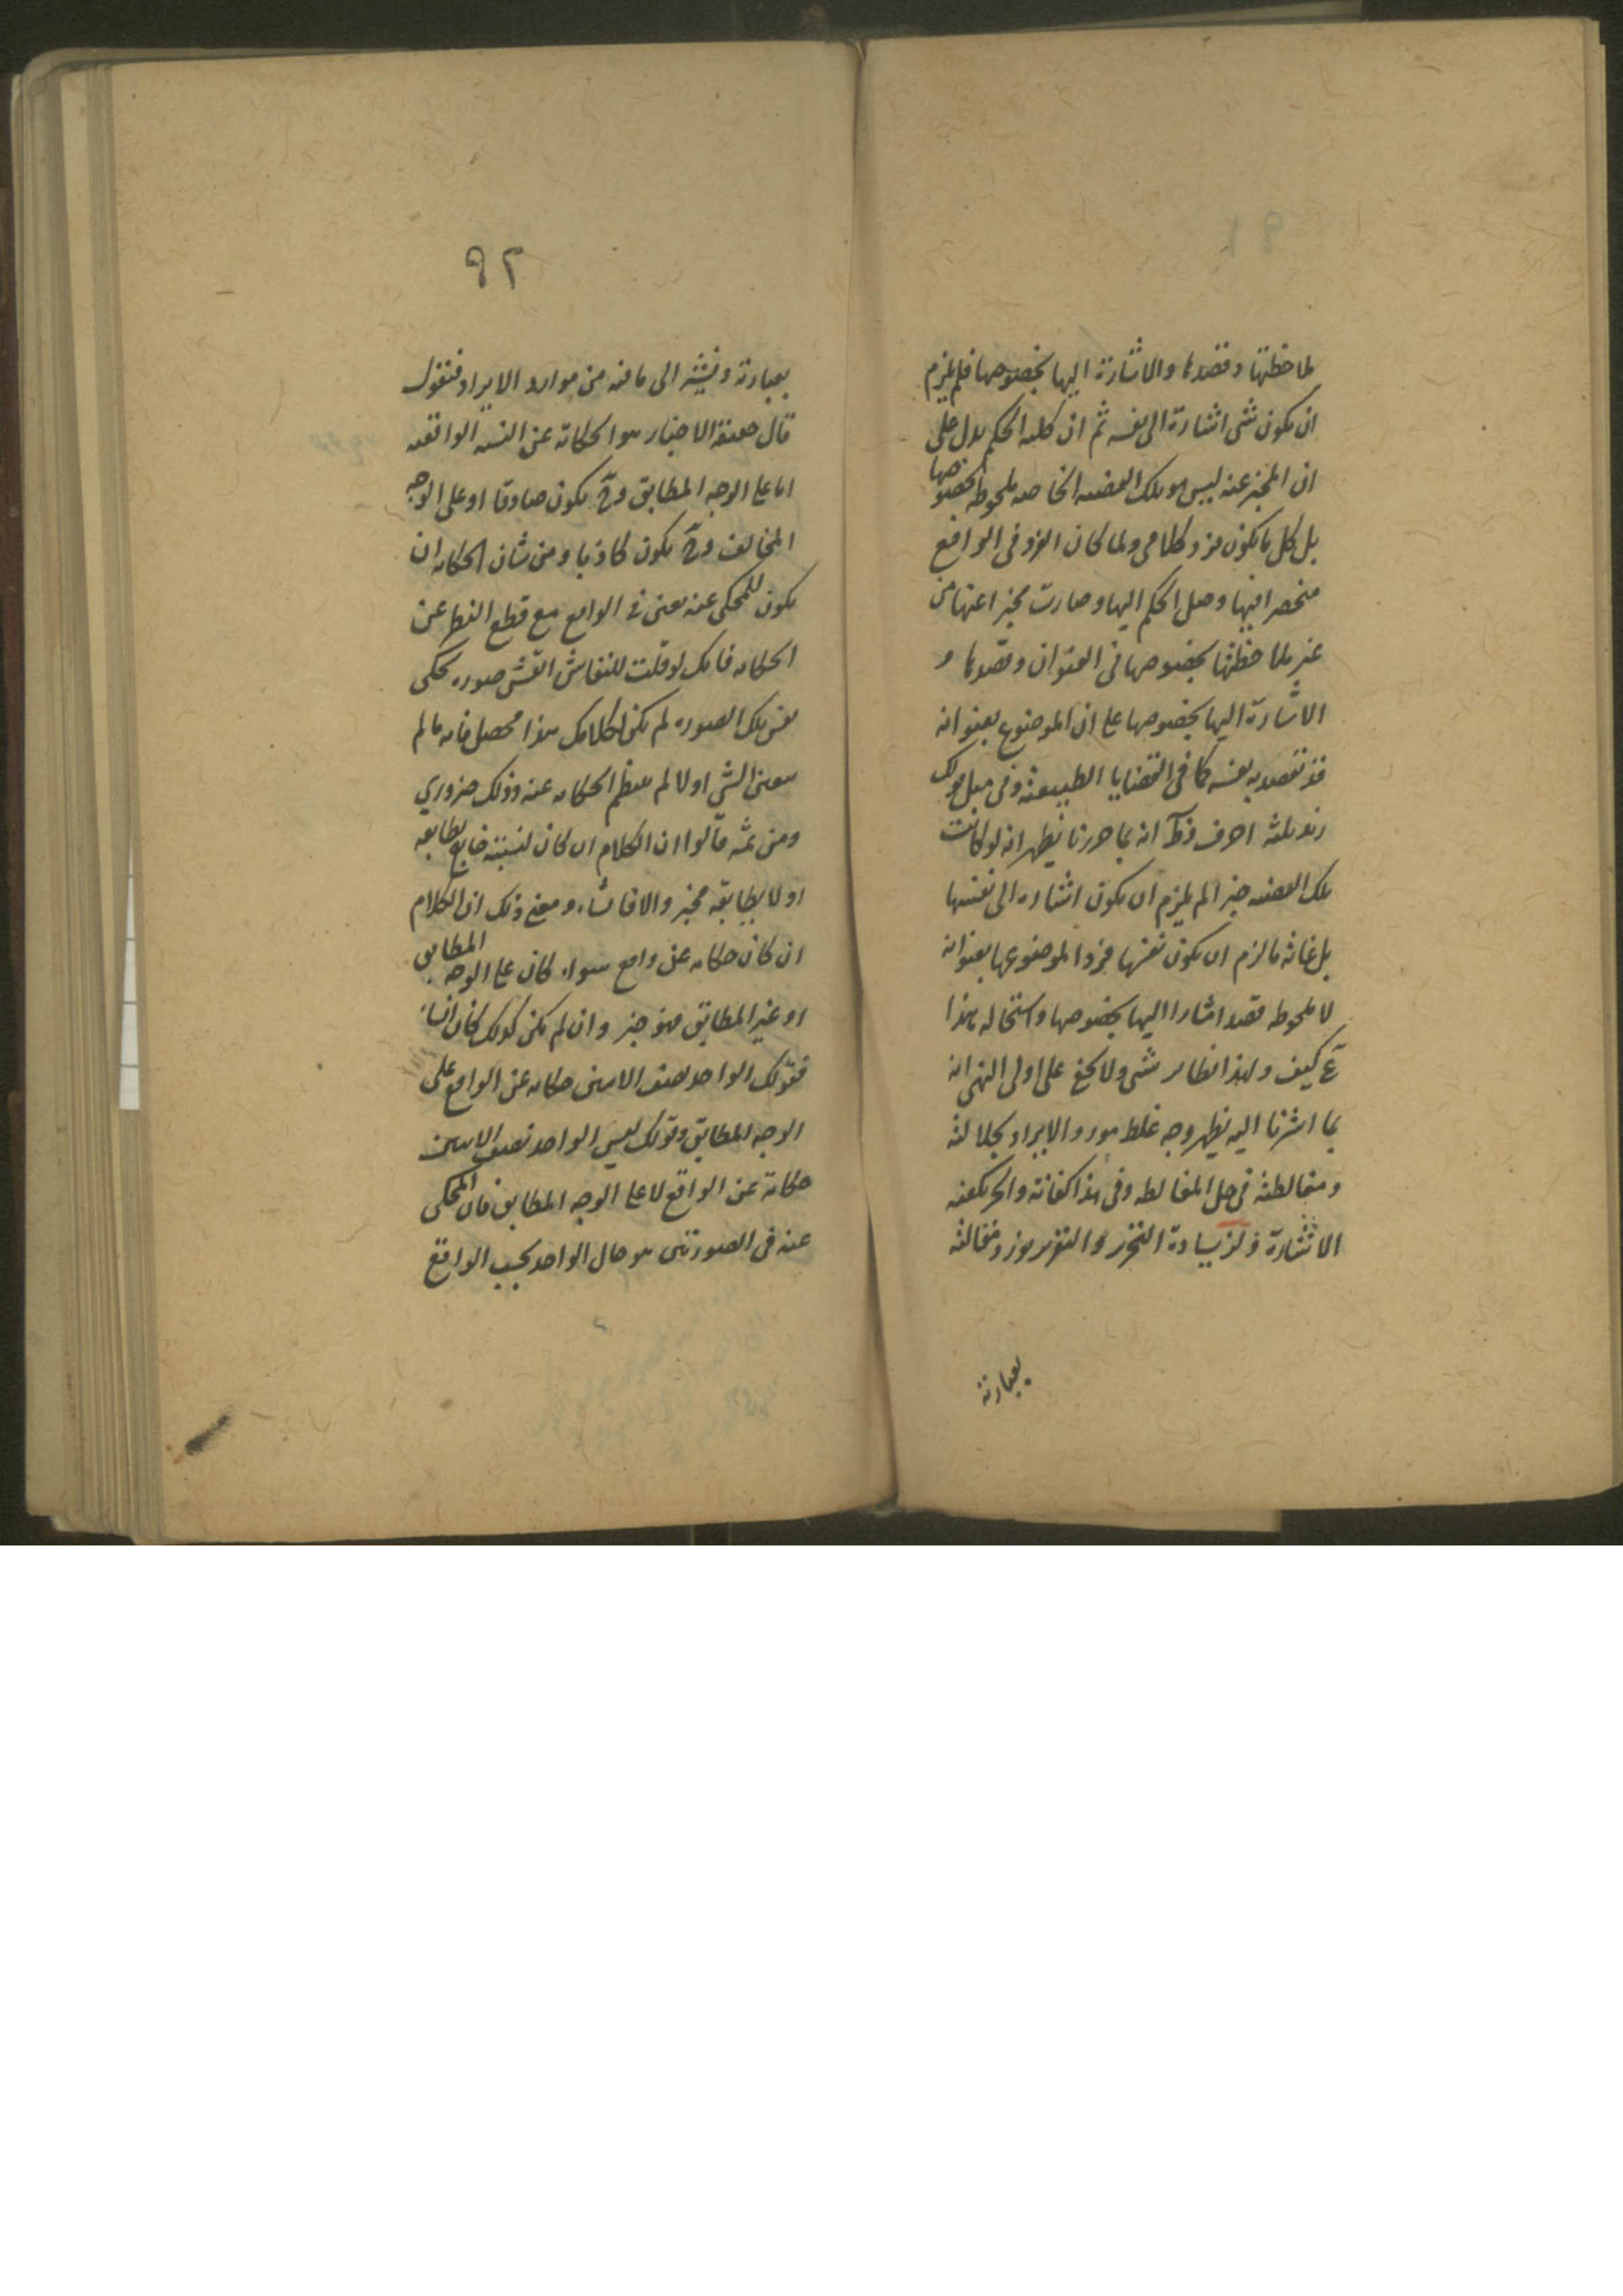 لملاحظتها وقصدها والاشارة اليها بخصوصها فلم يلزم
ان يكون شئ اشارة الى نفسه ثم ان كلية الحكم يدل على
ان المخبر عنه ليس هو تلك القضية الخاصة ملحوظة بخصوصها
بل كل ما يكون فرد كلامى ولما كان الفرد فى الواقع
منحصرا فيها وصل الحكم اليها وصارت مخبرا عنها من
غير ملاحظتها بخصوصها فى العنوان وقصدها و
الاشارة اليها بخصوصها على ان الموضوع بعنوانه
قد تقصد به نفسه كما فى القضايا الطبيعية وفى مثل قولك
زيد ثلثة احرف انه بما حررنا يظهر انه لو كانت
تلك القضية خبرا لم يلزم ان يكون اشارة الى نفسها
بل غاية ما لزم ان يكون نفسها فردا لموضوعها بعنوانه
لا ملحوظة قصدا مشارا اليها بخصوصها واستحالة هذا
كيف ولهذا نظاير شتى ولا يخفى على اولى النهى انه
بما اشرنا اليه يظهر وجه غلط مورد الايراد بجلالته
ومغالطته فى حل المغالطة وفى هذا كفاية والحر يكفيه
الاشارة ولزيادة التحرير والتقرير مقالته
بعبارته
٩٢
بعبارته ونشير الى ما فيه من موارد الايراد فنقول
قال حقيقة الاخبار هو الحكاية عن النسبة الواقعية
اما على الوجه المطابق وح يكون صادقا او على الوجه
المخالف وح يكون كاذبا ومن شان الحكاية ان
يكون للمحكى عنه تعين فى الواقع مع قطع النظر عن
الحكاية فانك لو قلت للنقاش انقش صورة تحكى
نفس تلك الصورة لم يكن لكلامك هذا محصل فانه ما لم
يتعين الشئ اولا لم ينتظم الحكاية عنه وذلك ضرورى
ومن ثمه قالوا ان الكلام ان كان لنسبته خارج يطابقه
او لا يطابقه فخبر والا فانشاء ومعنى ذلك ان الكلام
ان كان حكاية عن واقع سواء كان على الوجه المطابق
او غير المطابق فهو خبر وان لم يكن كذلك كان انشاء
فقولك الواحد نصف الاثنين حكاية عن الواقع على
الوجه المطابق وقولك ليس الواحد نصف الاثنين
حكاية عن الواقع لا على الوجه المطابق فان المحكى
عنه فى الصورتين هو حال الواحد بحسب الواقع